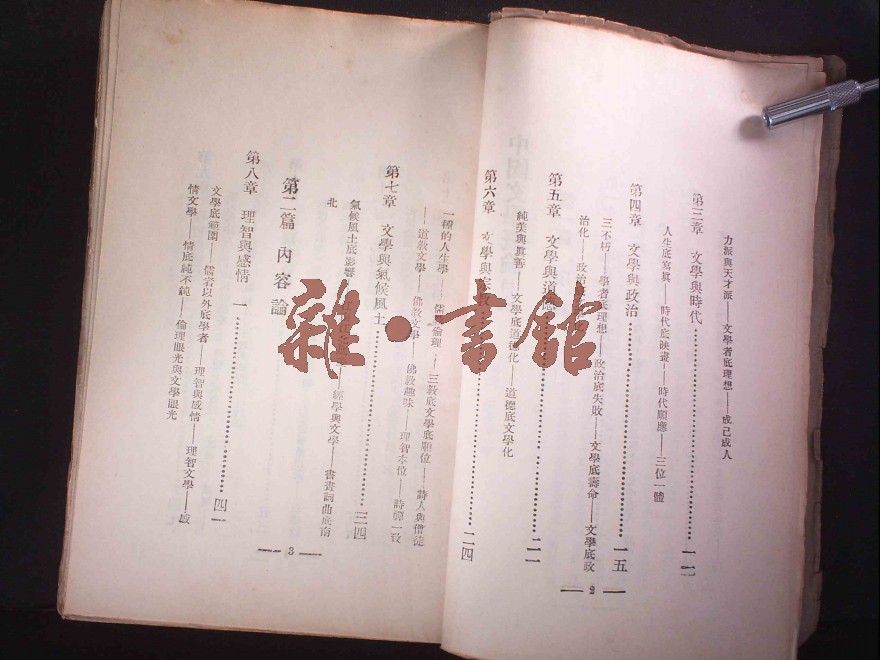 力派與天才派——文學者底理想——成己成人
第三章 文學與時代
人生底寫眞——時代底映畫——時代順應——三位一體
第四章 文學與政治 一五
三不朽——學者底理想——政治底失敗——文學底壽命——文學底政
治化——政治
第五章 文學與道德 二一
純美與眞善——文學底道德化——道德底文學化
第六章 文學與 二四
— 2 —
一種的人生學——儒 倫理——三教底文學底順位——詩人與僧徒
——道教文學——佛教文學——佛教趣味——理智本位——詩禪一致
第七章 文學與氣候風土 三四
氣候風土底影響 經學與文學——書畫詞曲底南
北
第二篇 內容論
第八章 理智與感情 一 四一
文學底範圍——儒者以外底學者——理智與感情——理智文學——感
情文學——情底純不純——倫理眼光與文學眼光
— 3 —
雜·書館